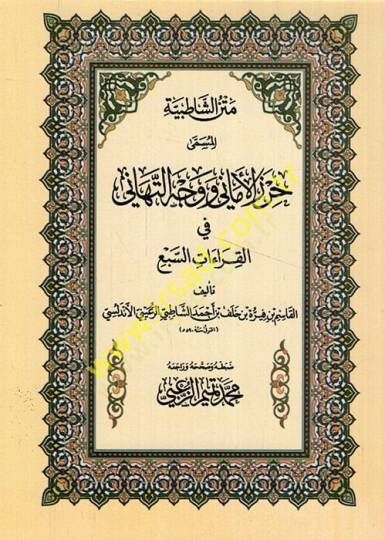 متن الشاطبية
المسمى
حرز الأماني ووجه التهاني
في
القراءات السبع
تأليف
القاسم بن فيرة بن خلف بن أحمد الشاطبي الرعيني الأندلسي
(المتوفى سنة ٥٩٠ه)
ضبطه وصححه وراجعه
محمد تميم الزعبي